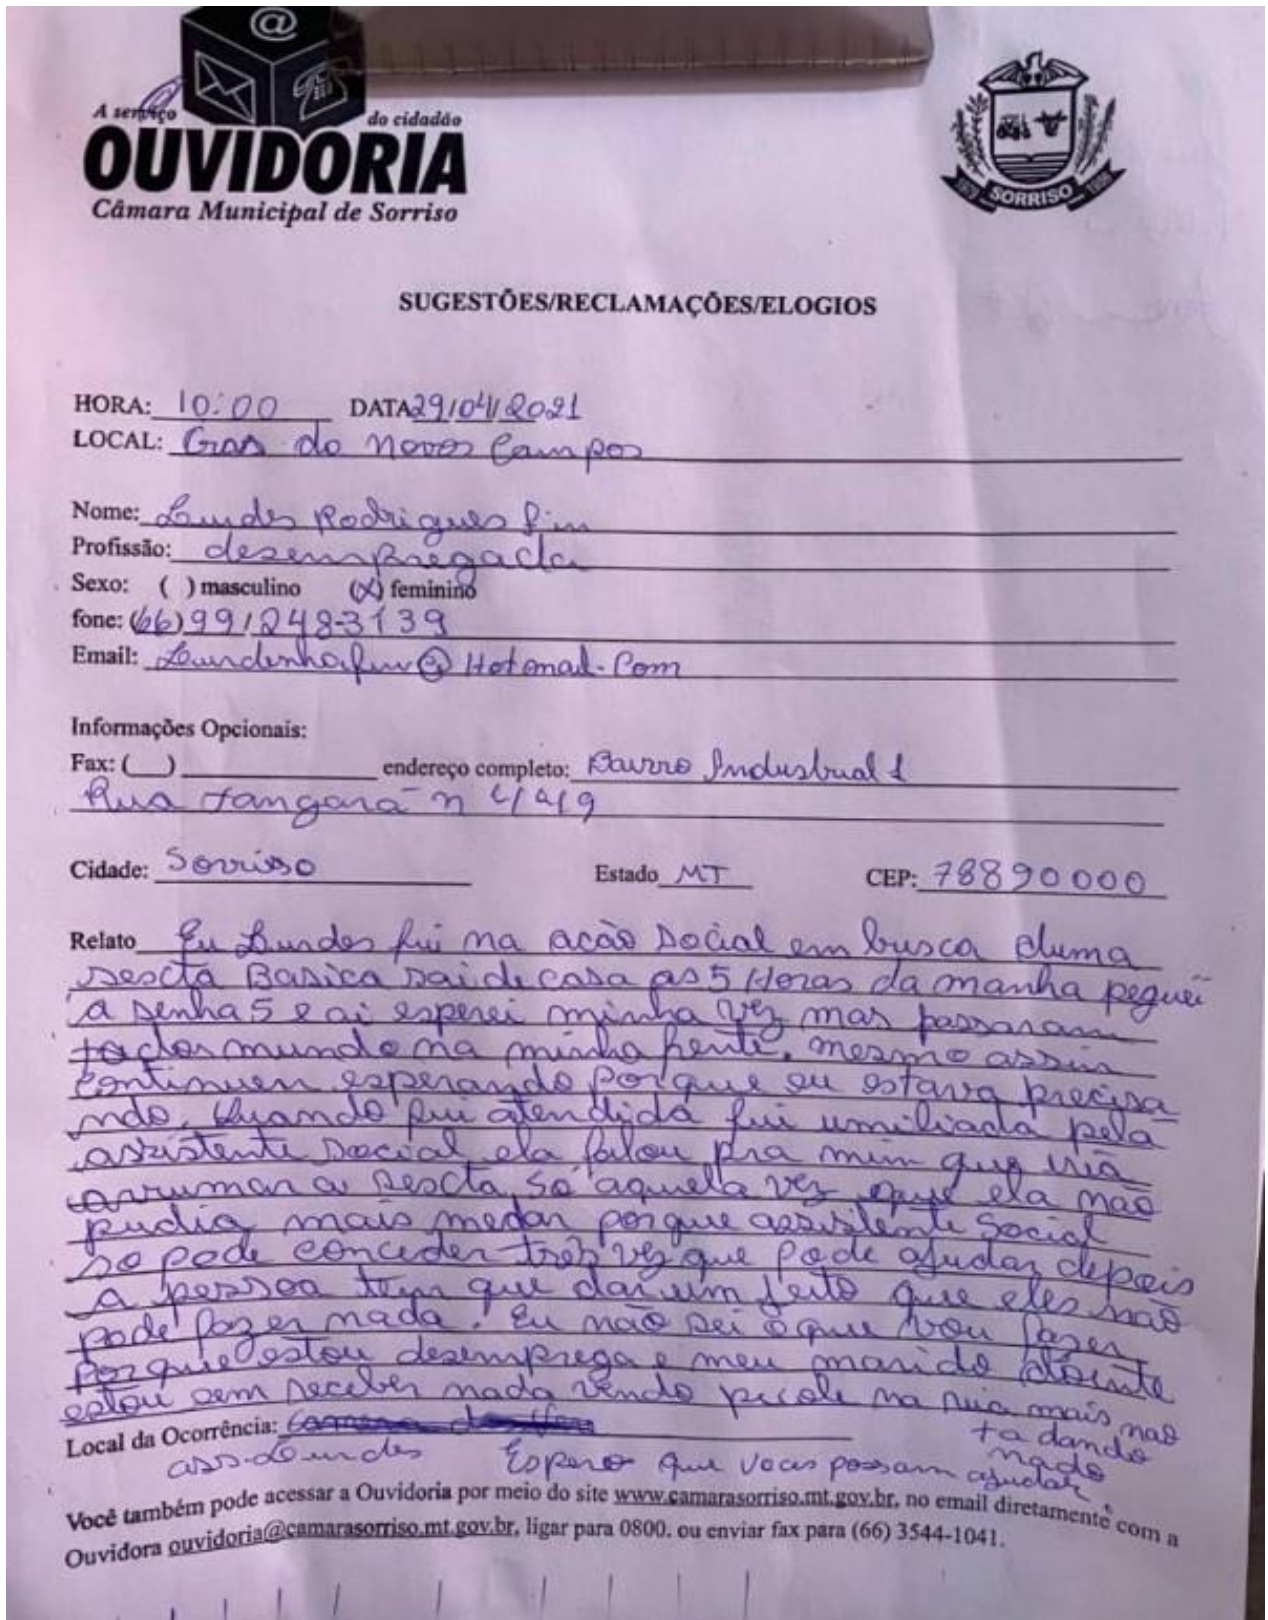 @
A serviço do cidadão
OUVIDORIA
Câmara Municipal de Sorriso
SORRISO
SUGESTÕES/RECLAMAÇÕES/ELOGIOS
HORA: 10:00 DATA 29/04/2021
LOCAL: Cras do Novos Campos
Nome: Lurdes Rodrigues fim
Profissão: desempregada
Sexo: ( ) masculino (X) feminino
fone: (66) 99/248-3139
Email: @Hotmail.Com
Informações Opcionais:
Fax: ( ) endereço completo: Bairro Industrual 1
Rua tangará n
Cidade: Sorriso Estado MT CEP: 78890000
Relato Eu Lurdes fui na acão Social em busca duma
sescta Basica sai de casa as 5 Horas da manha peguei
a senha 5 e ai esperei minha vez mas passaram
todos mundo na minha frente, mesmo assim
continuei esperando porque eu estava precisa
ndo. Quando fui atendida fui umiliada pela
assistente social ela falou pra mim que iria
arrumar a sescta, só aquela vez que ela nao
pudia mais medar porque assistente Social
so pode conceder três vez que pode ajudar depois
a pessoa tem que dar um jeito que eles não
pode fazer nada. Eu não sei o que vou fazer
porque estou desemprega e meu marido doente
estou sem receber nada vendo picole na rua mais nao
ta dando
nado
Local da Ocorrência:
ass. Lurdes Espero que voces possam ajudar.
Você também pode acessar a Ouvidoria por meio do site www.camarasorriso.mt.gov.br, no email diretamente com a
Ouvidora ouvidoria@camarasorriso.mt.gov.br, ligar para 0800. ou enviar fax para (66) 3544-1041.